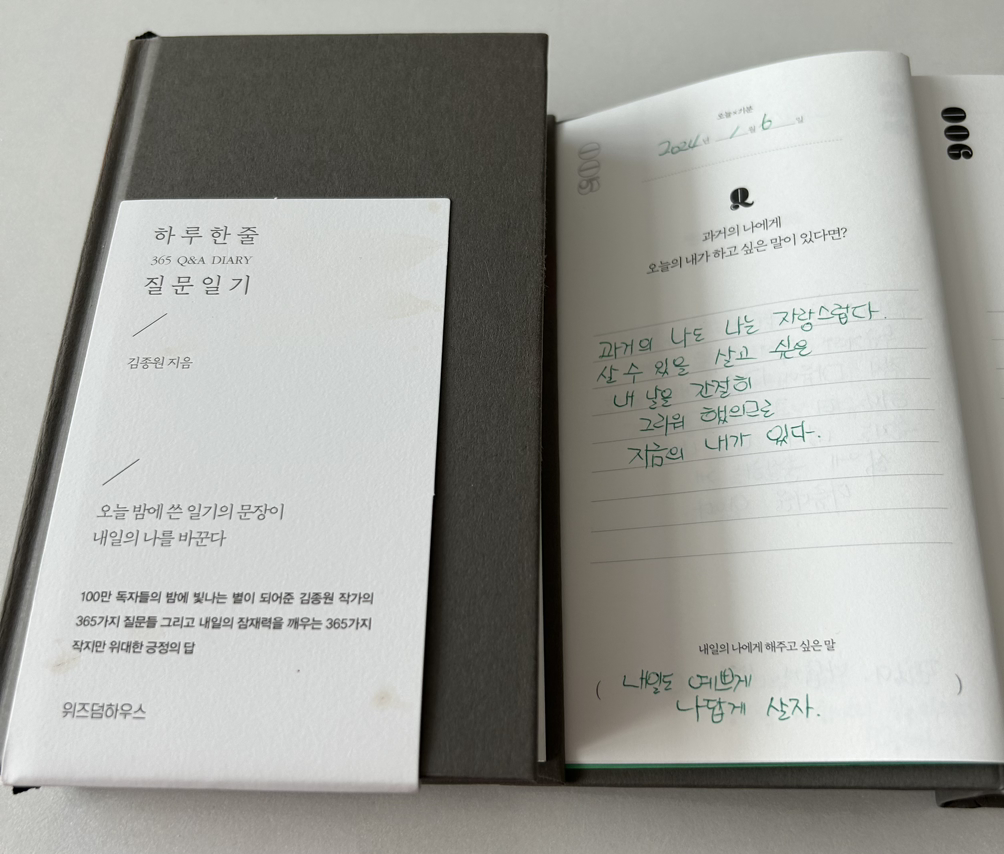 하루 한 줄
365 Q&A DIARY
질문 일기
김종원 지음
오늘 밤에 쓴 일기의 문장이
내일의 나를 바꾼다
100만 독자들의 밤에 빛나는 별이 되어준 김종원 작가의
365가지 질문들 그리고 내일의 잠재력을 깨우는 365가지
작지만 위대한 긍정의 답
위즈덤하우스
오늘×기분
2024년 1월 6일
Q
과거의 나에게
오늘의 내가 하고 싶은 말이 있다면?
과거의 나도 나는 자랑스럽다.
살 수 있을 살고 싶은
내 날을 간절히
그리워 했의므로
지금의 내가 있다.
내일의 나에게 해주고 싶은 말
( 내일도 예쁘게
나답게 살자. )
006